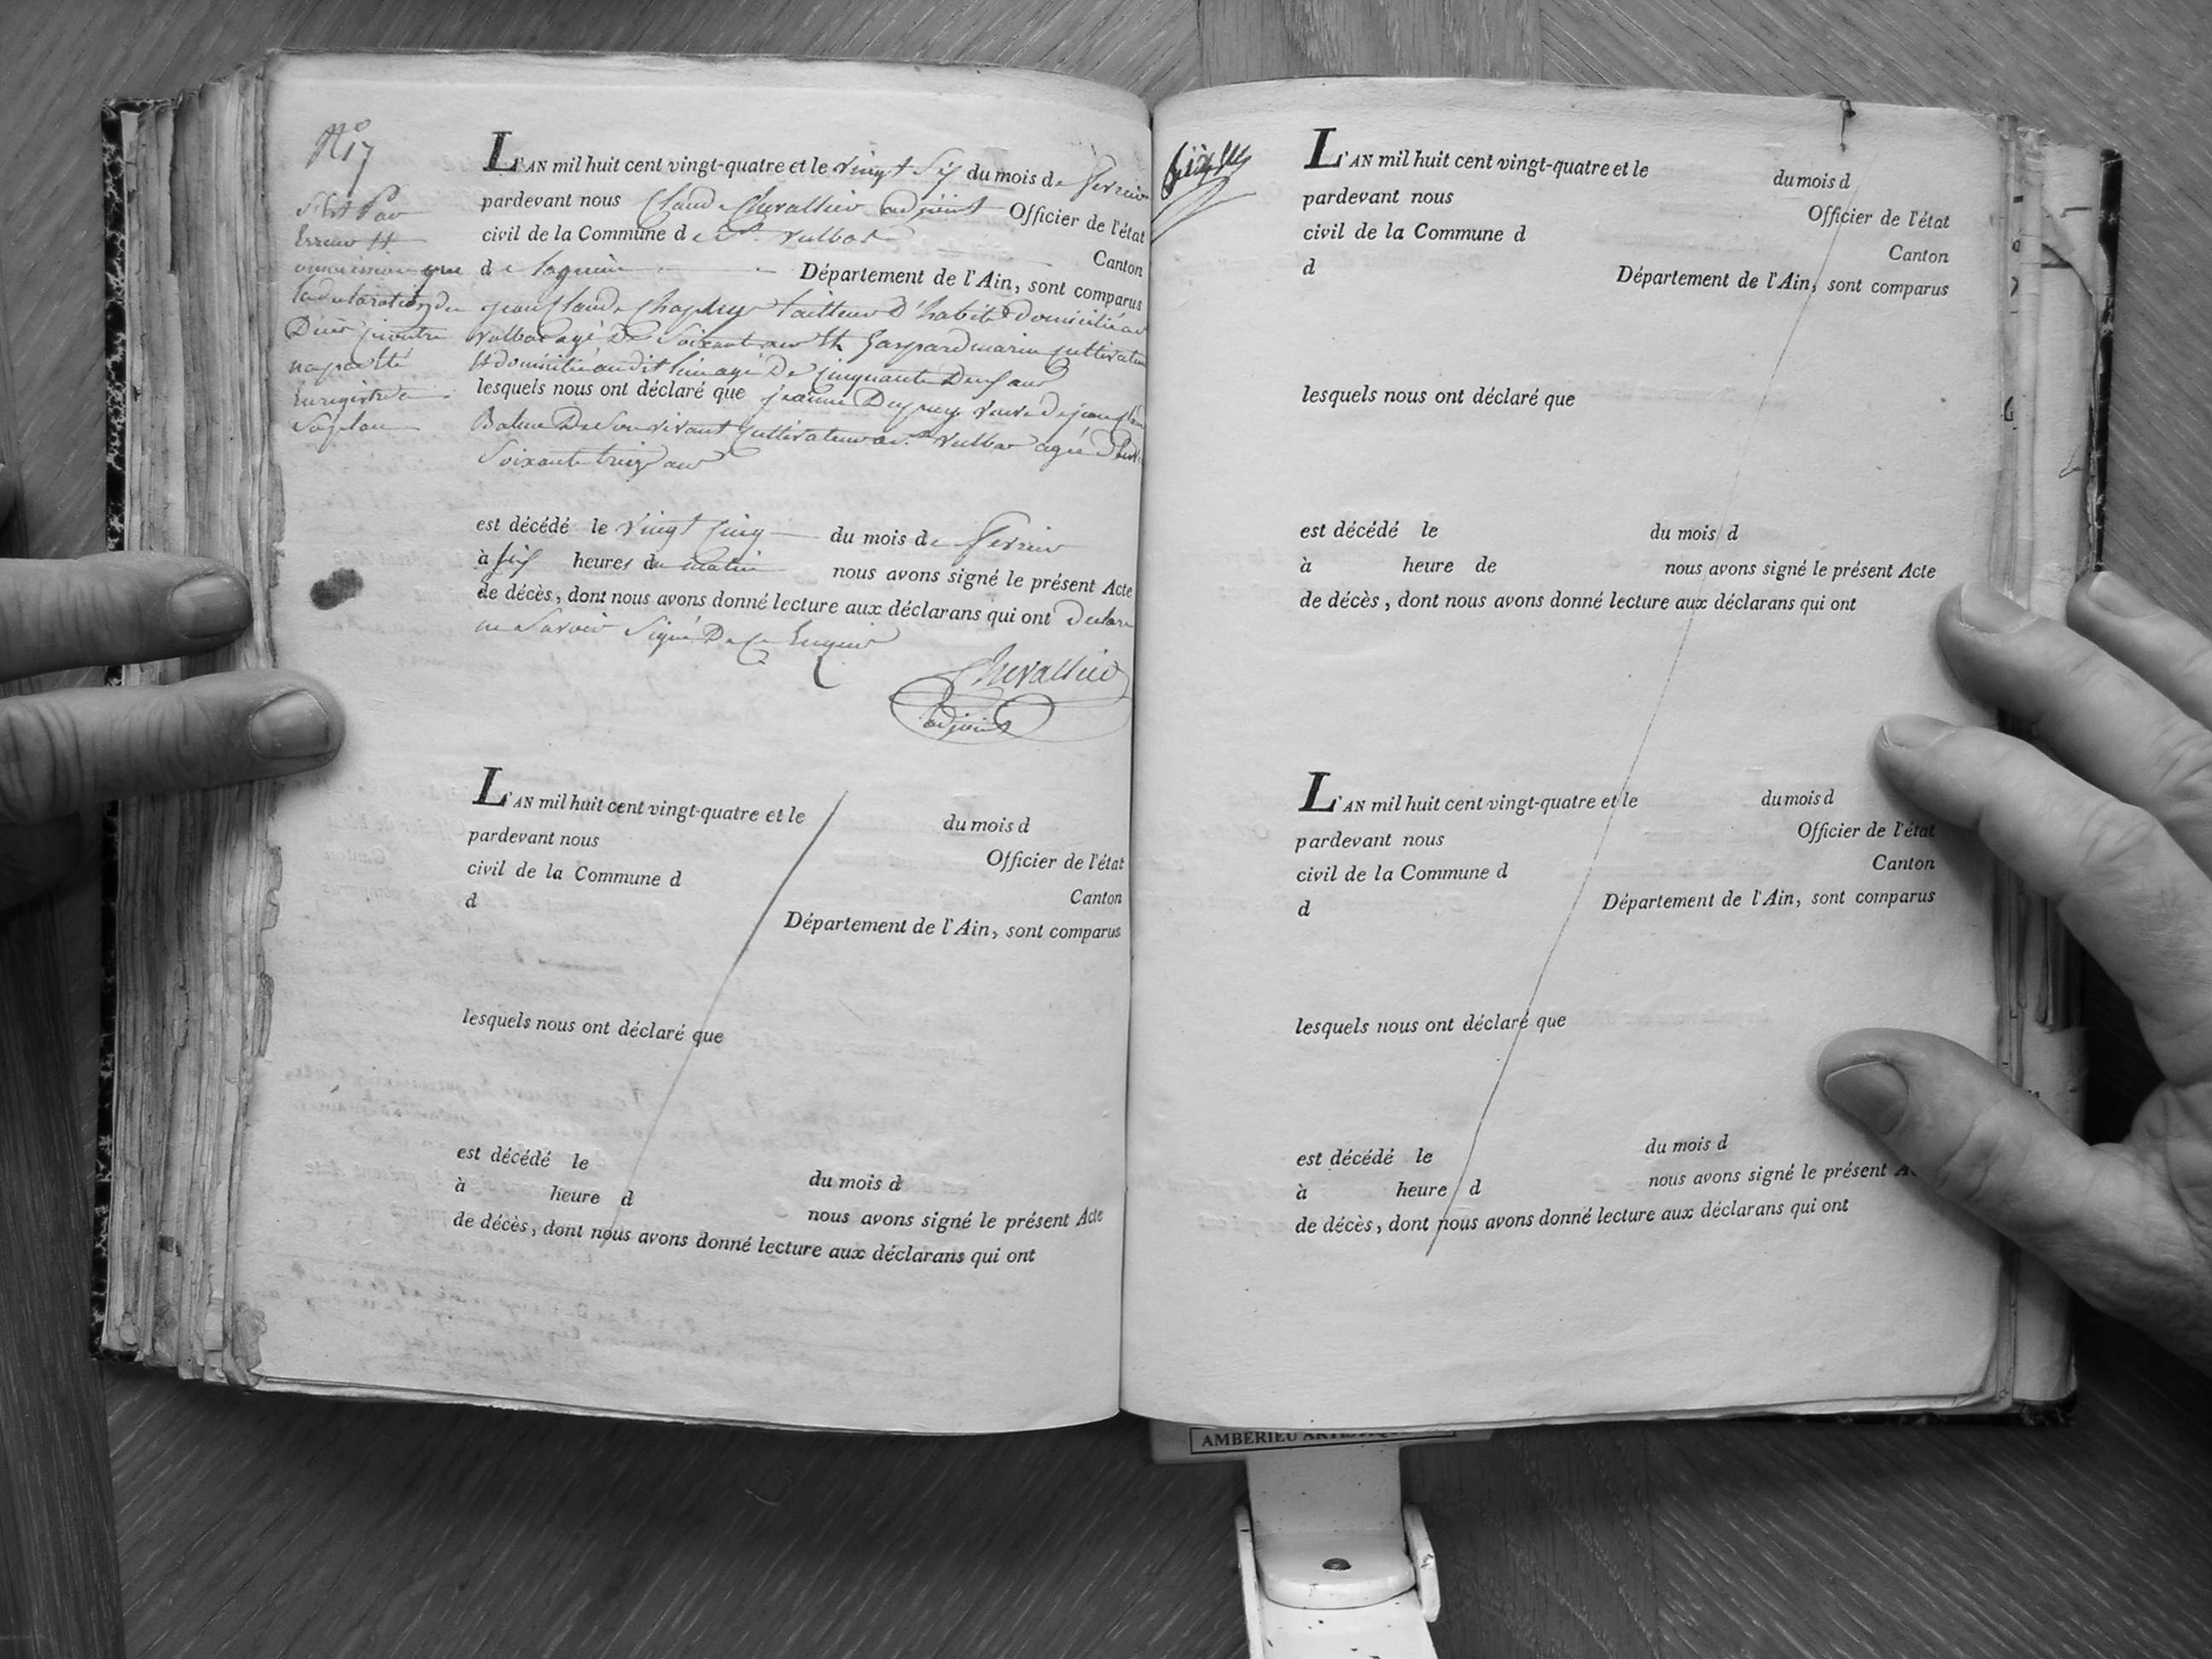 N° 17
L'AN mil huit cent vingt-quatre et le vingt Six du mois de fevrier
pardevant nous Claude Chevallier adjoint Officier de l'état
civil de la Commune de St. Vulbas Canton
de lagnieu Département de l'Ain, sont comparus
jean Claude Chapuy tailleur d'habits domicilié a
Vulbas agé De Soixante ans et Gaspard marin cultivateur
domicilié audit lieu agé De Cinquante Deux ans
lesquels nous ont déclaré que jeanne Dupuy veuve de jean
Balme De Son vivant Cultivateur a St. Vulbas agée De
Soixante treize ans
est décédé le vingt Cinq du mois de fevrier
à Six heures du matin nous avons signé le présent Acte
de décès, dont nous avons donné lecture aux déclarans qui ont Declaré
ne Savoir Signé De Ce Enquis
Chevallier
adjoint
erreur
omission que
la declaration
L'AN mil huit cent vingt-quatre et le du mois d
pardevant nous Officier de l'état
civil de la Commune d Canton
d Département de l'Ain, sont comparus
lesquels nous ont déclaré que
est décédé le du mois d
à heure d nous avons signé le présent Acte
de décès, dont nous avons donné lecture aux déclarans qui ont
L'AN mil huit cent vingt-quatre et le du mois d
pardevant nous Officier de l'état
civil de la Commune d Canton
d Département de l'Ain, sont comparus
lesquels nous ont déclaré que
est décédé le du mois d
à heure de nous avons signé le présent Acte
de décès, dont nous avons donné lecture aux déclarans qui ont
L'AN mil huit cent vingt-quatre et le du mois d
pardevant nous Officier de l'état
civil de la Commune d Canton
d Département de l'Ain, sont comparus
lesquels nous ont déclaré que
est décédé le du mois d
à heure d nous avons signé le présent A
de décès, dont nous avons donné lecture aux déclarans qui ont
AMBERIEU